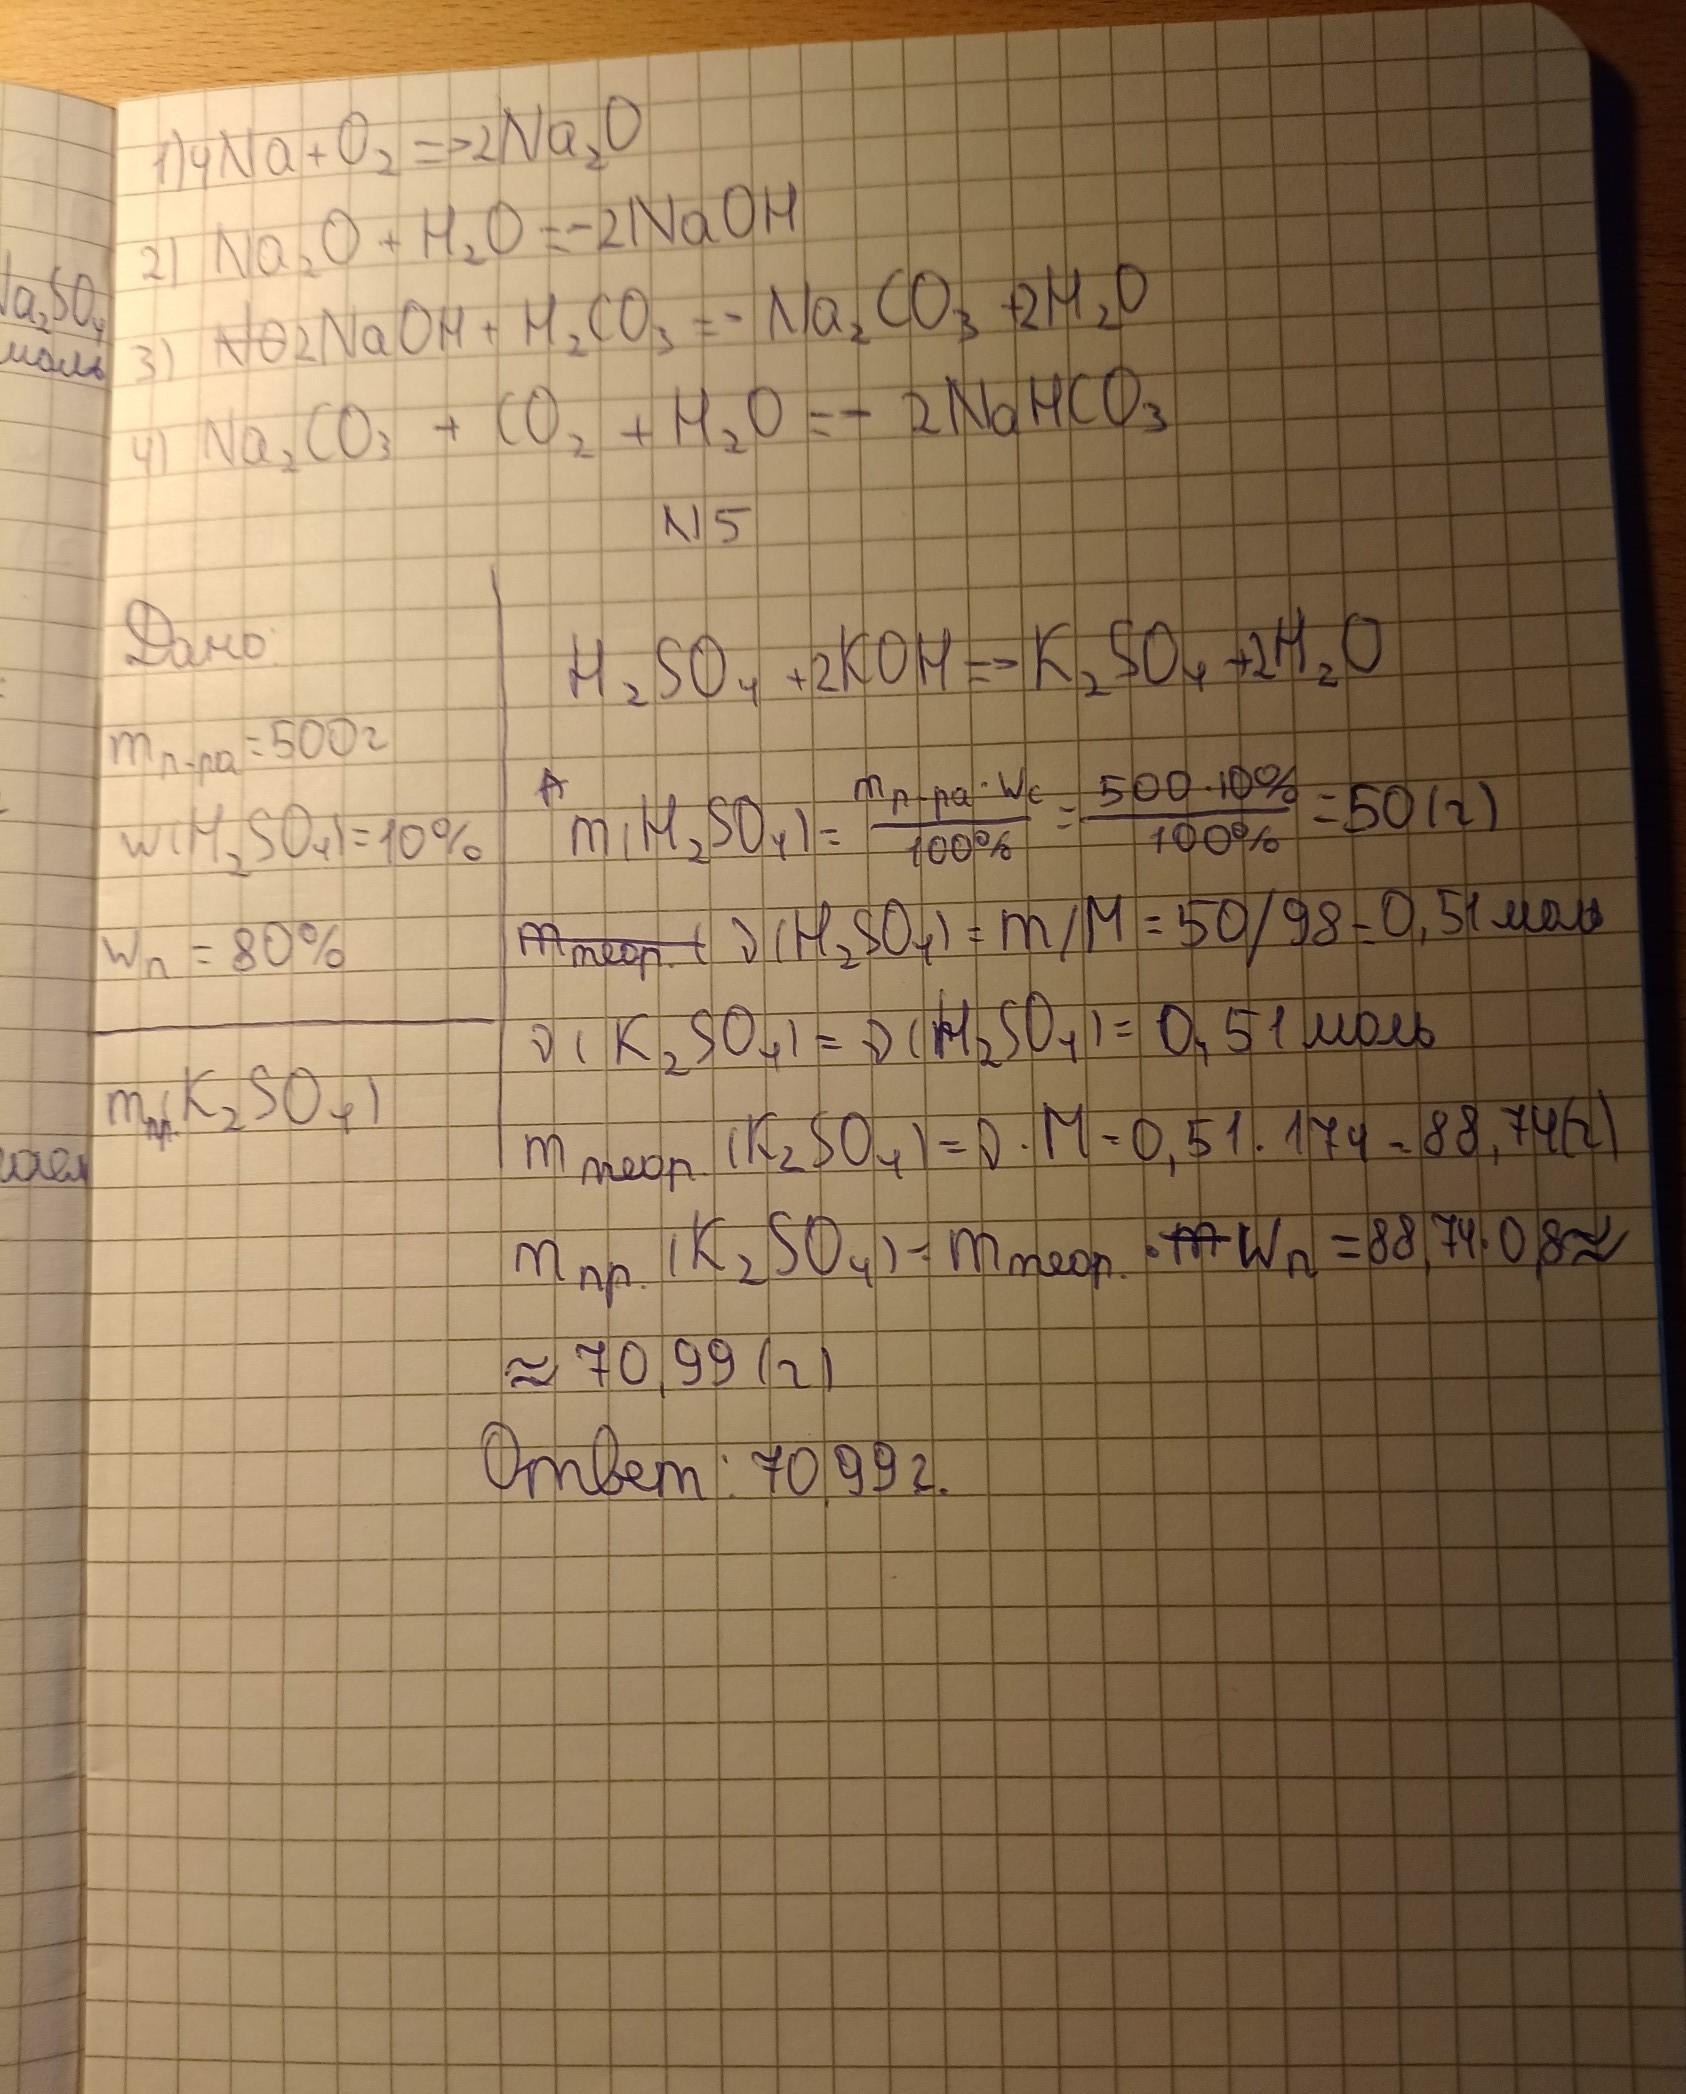 1) 4Na + O₂ => 2Na₂O
2) Na₂O + H₂O =- 2NaOH
3) 2NaOH + H₂CO₃ =- Na₂CO₃ + 2H₂O
4) Na₂CO₃ + CO₂ + H₂O =- 2NaHCO₃
N5
Дано:
mр-ра = 500г
w(H₂SO₄) = 10%
wп = 80%
mпр.(K₂SO₄)
H₂SO₄ + 2KOH => K₂SO₄ + 2H₂O
m(H₂SO₄) = mр-ра · wс / 100% = 500 · 10% / 100% = 50 (г)
ν(H₂SO₄) = m/M = 50/98 = 0,51 моль
ν(K₂SO₄) = ν(H₂SO₄) = 0,51 моль
mтеор.(K₂SO₄) = ν · M = 0,51 · 174 = 88,74(г)
mпр.(K₂SO₄) = mтеор. · wп = 88,74 · 0,8 ≈
≈ 70,99 (г)
Ответ: 70,99 г.
Na₂SO₄
моль